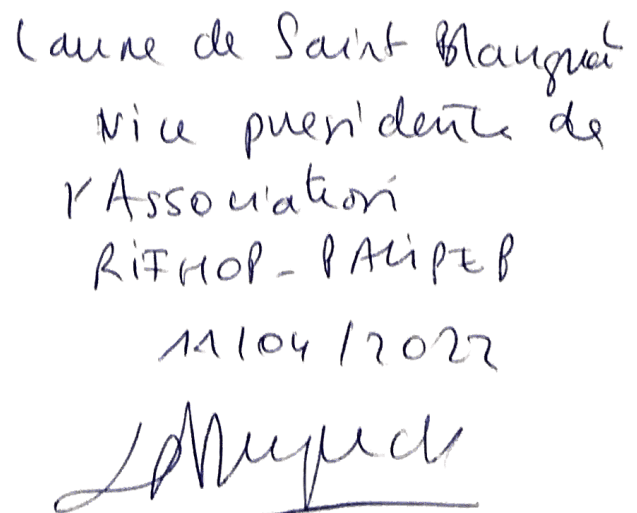 Laure de Saint Blanquat
Vice présidente de
l'Association
RIFHOP - PALIPED
11/04/2022